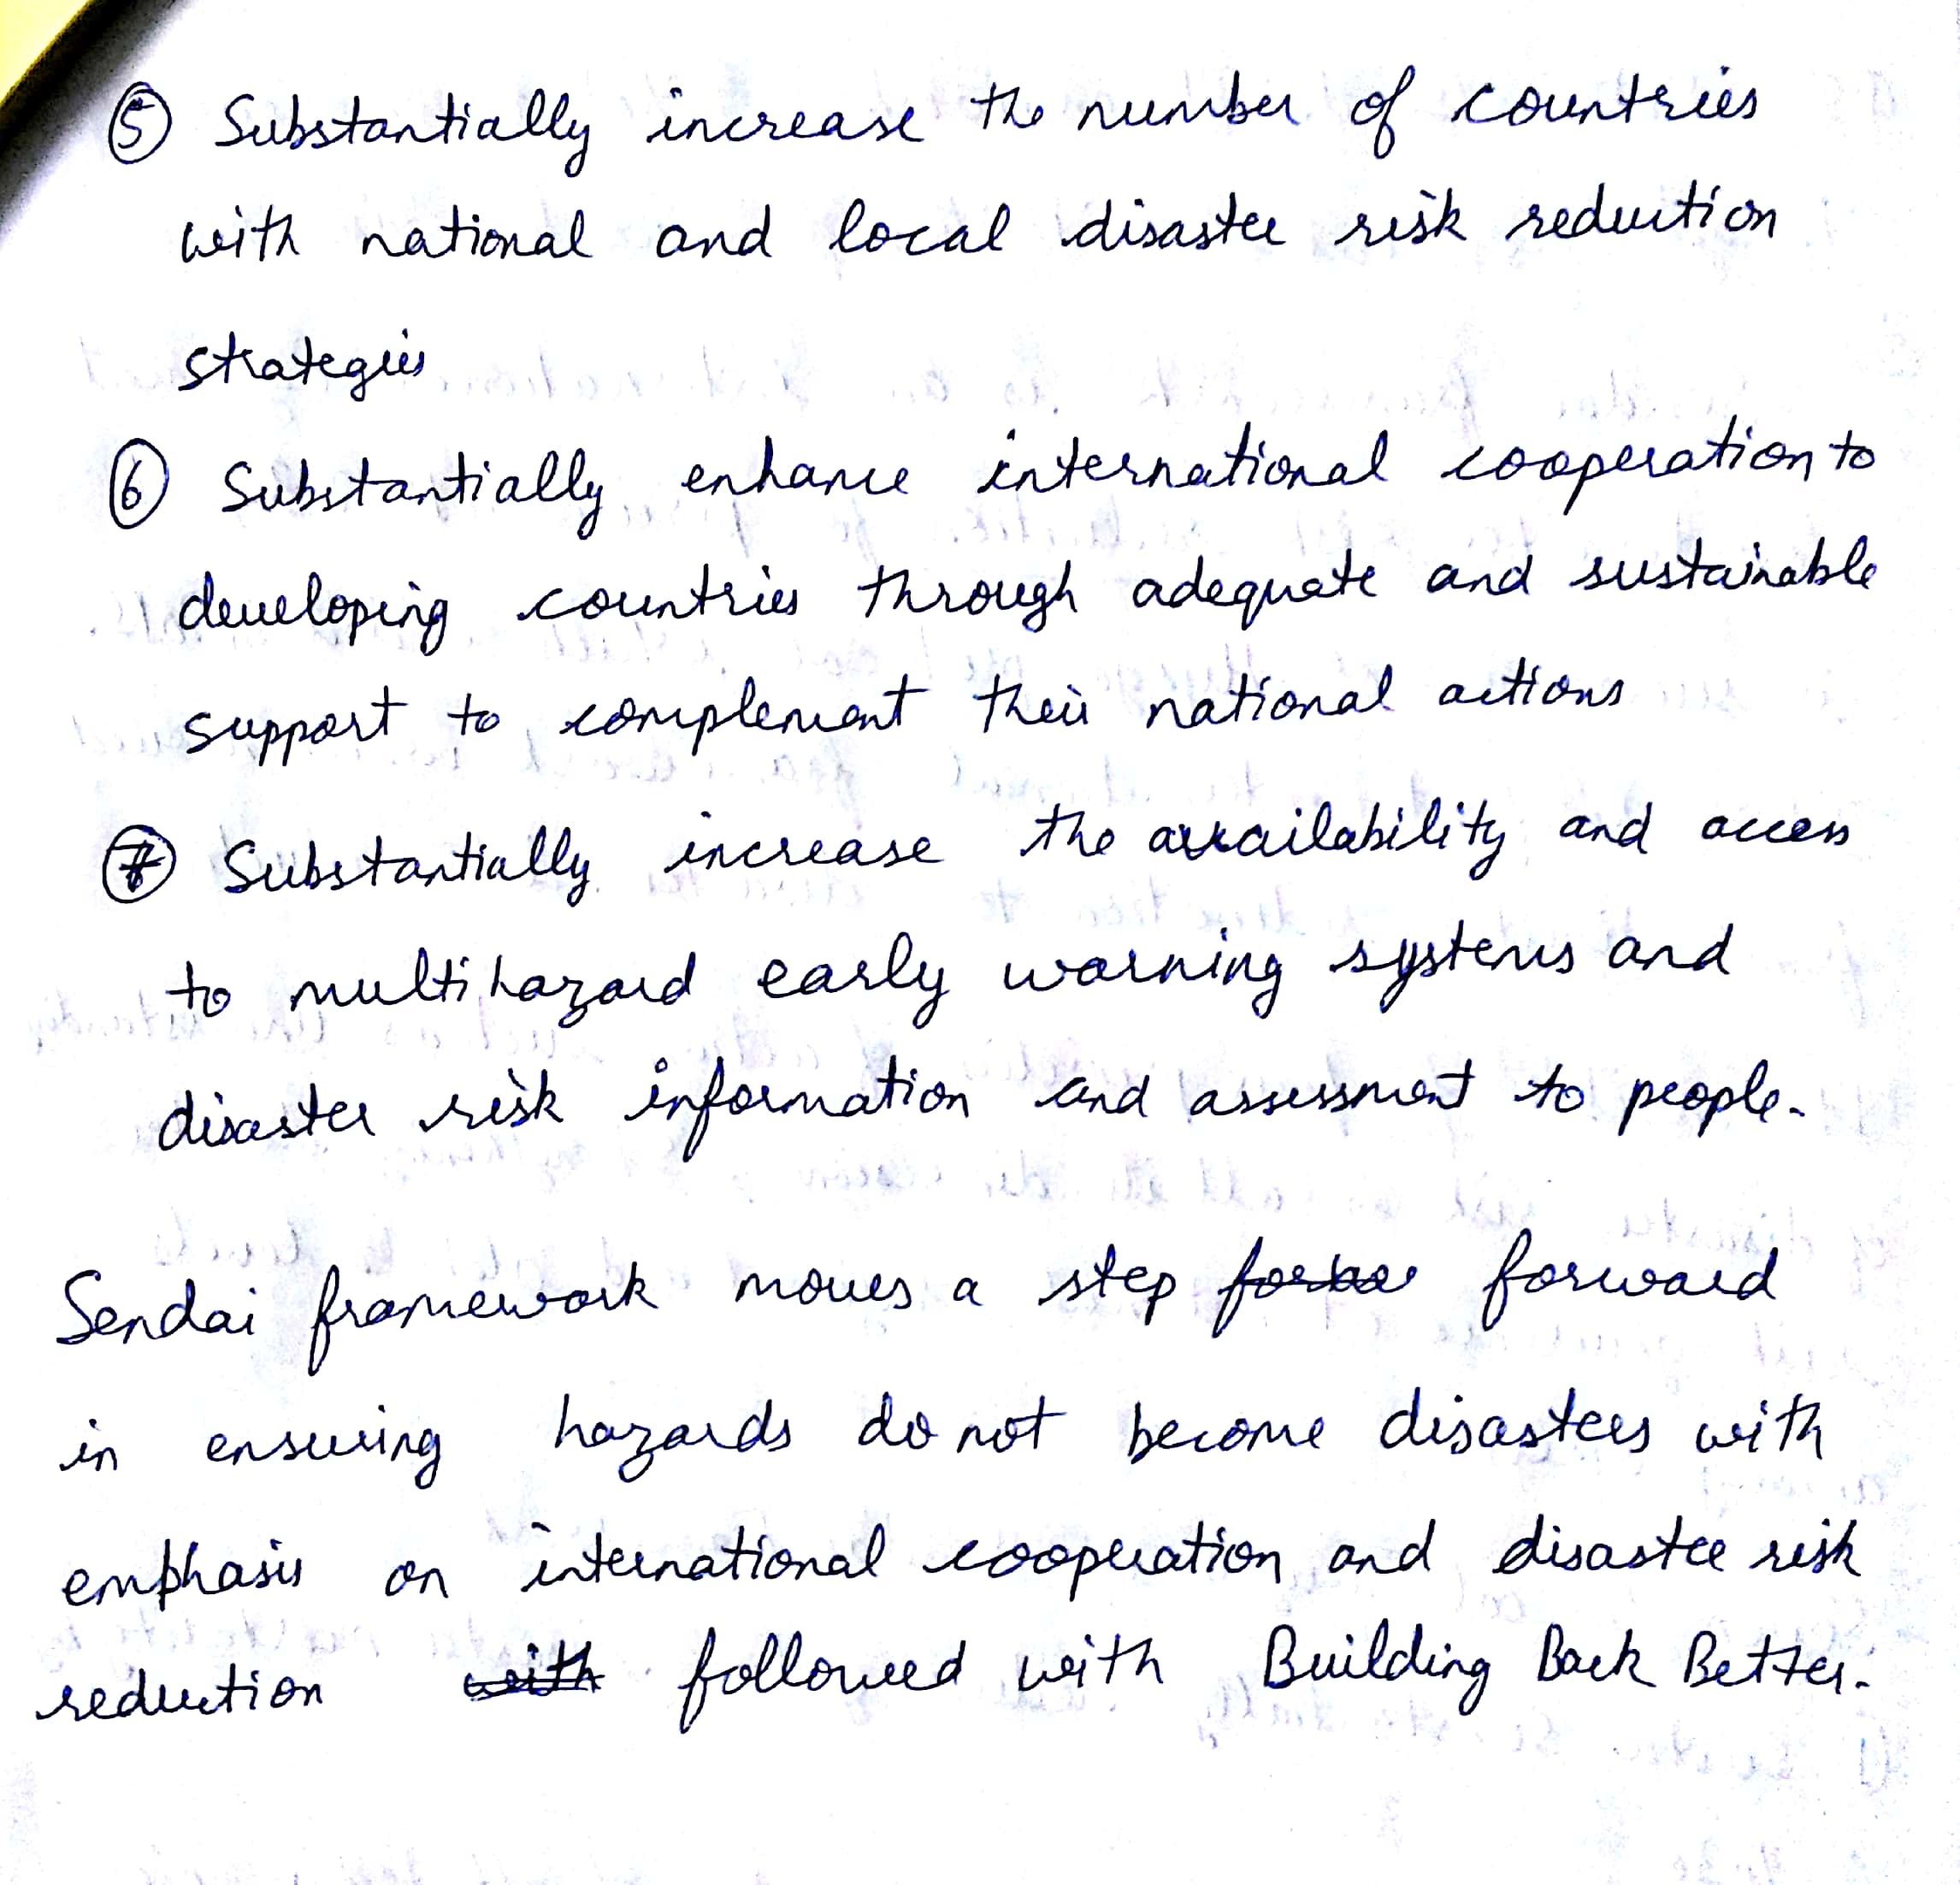 ⑤ Substantially increase the number of countries
with national and local disaster risk reduction
strategies
⑥ Substantially enhance international cooperation to
developing countries through adequate and sustainable
support to complement their national actions
⑦ Substantially increase the availability and access
to multihazard early warning systems and
disaster risk information and assessment to people.
Sendai framework moves a step forward
in ensuring hazards do not become disasters with
emphasis on international cooperation and disaster risk
reduction with followed with Building Back Better.